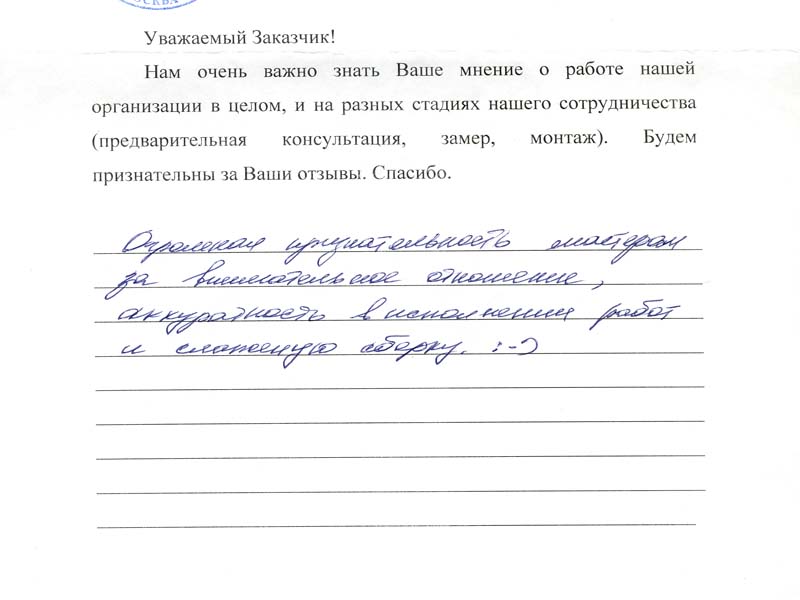 МОСКВА
Уважаемый Заказчик!
Нам очень важно знать Ваше мнение о работе нашей
организации в целом, и на разных стадиях нашего сотрудничества
(предварительная консультация, замер, монтаж). Будем
признательны за Ваши отзывы. Спасибо.
Огромная признательность мастерам
за внимательное отношение,
аккуратность в исполнении работ
и сложную сборку. :-)